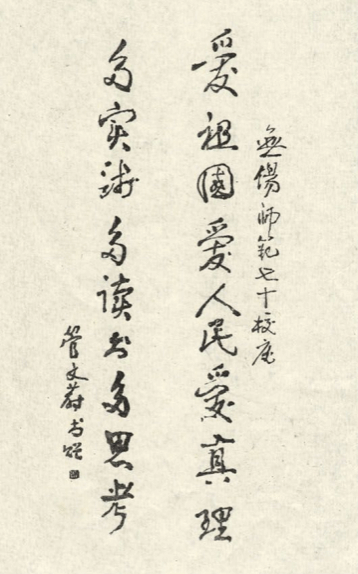 無錫師範七十校庆
愛祖國愛人民愛真理
多实践多读书多思考
管文蔚书贈